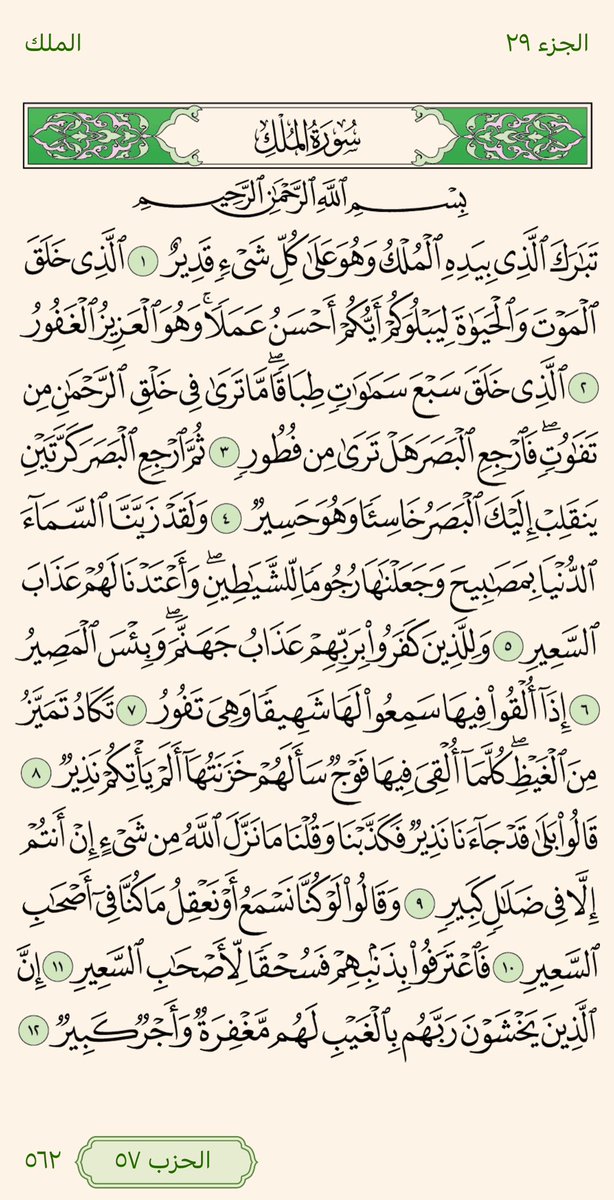 الملك
الجزء ٢٩
سُورَةُ المُلْكِ
بِسْمِ اللَّهِ الرَّحْمَٰنِ الرَّحِيمِ
تَبَٰرَكَ ٱلَّذِي بِيَدِهِ ٱلْمُلْكُ وَهُوَ عَلَىٰ كُلِّ شَيْءٍ قَدِيرٌ ١ ٱلَّذِي خَلَقَ
ٱلْمَوْتَ وَٱلْحَيَوٰةَ لِيَبْلُوَكُمْ أَيُّكُمْ أَحْسَنُ عَمَلًاۚ وَهُوَ ٱلْعَزِيزُ ٱلْغَفُورُ
٢ ٱلَّذِي خَلَقَ سَبْعَ سَمَٰوَٰتٍ طِبَاقًاۖ مَّا تَرَىٰ فِي خَلْقِ ٱلرَّحْمَٰنِ مِن
تَفَٰوُتٍۖ فَٱرْجِعِ ٱلْبَصَرَ هَلْ تَرَىٰ مِن فُطُورٍ ٣ ثُمَّ ٱرْجِعِ ٱلْبَصَرَ كَرَّتَيْنِ
يَنقَلِبْ إِلَيْكَ ٱلْبَصَرُ خَاسِئًا وَهُوَ حَسِيرٌ ٤ وَلَقَدْ زَيَّنَّا ٱلسَّمَآءَ
ٱلدُّنْيَا بِمَصَٰبِيحَ وَجَعَلْنَٰهَا رُجُومًا لِّلشَّيَٰطِينِۖ وَأَعْتَدْنَا لَهُمْ عَذَابَ
ٱلسَّعِيرِ ٥ وَلِلَّذِينَ كَفَرُوا۟ بِرَبِّهِمْ عَذَابُ جَهَنَّمَۖ وَبِئْسَ ٱلْمَصِيرُ
٦ إِذَآ أُلْقُوا۟ فِيهَا سَمِعُوا۟ لَهَا شَهِيقًا وَهِيَ تَفُورُ ٧ تَكَادُ تَمَيَّزُ
مِنَ ٱلْغَيْظِۖ كُلَّمَآ أُلْقِيَ فِيهَا فَوْجٌ سَأَلَهُمْ خَزَنَتُهَآ أَلَمْ يَأْتِكُمْ نَذِيرٌ ٨
قَالُوا۟ بَلَىٰ قَدْ جَآءَنَا نَذِيرٌ فَكَذَّبْنَا وَقُلْنَا مَا نَزَّلَ ٱللَّهُ مِن شَيْءٍ إِنْ أَنتُمْ
إِلَّا فِي ضَلَٰلٍ كَبِيرٍ ٩ وَقَالُوا۟ لَوْ كُنَّا نَسْمَعُ أَوْ نَعْقِلُ مَا كُنَّا فِيٓ أَصْحَٰبِ
ٱلسَّعِيرِ ١٠ فَٱعْتَرَفُوا۟ بِذَنۢبِهِمْ فَسُحْقًا لِّأَصْحَٰبِ ٱلسَّعِيرِ ١١ إِنَّ
ٱلَّذِينَ يَخْشَوْنَ رَبَّهُم بِٱلْغَيْبِ لَهُم مَّغْفِرَةٌ وَأَجْرٌ كَبِيرٌ ١٢
الحزب ٥٧
٥٦٢